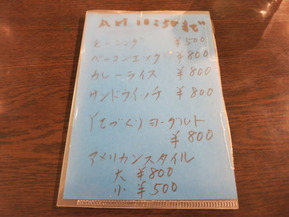 AM 10:50まで
モーニング ¥500
ベーコンエッグ ¥800
カレーライス ¥800
サンドウィッチ ¥800
いちづくヨーグルト
¥800
アメリカンスタイル
大 ¥800
小 ¥500